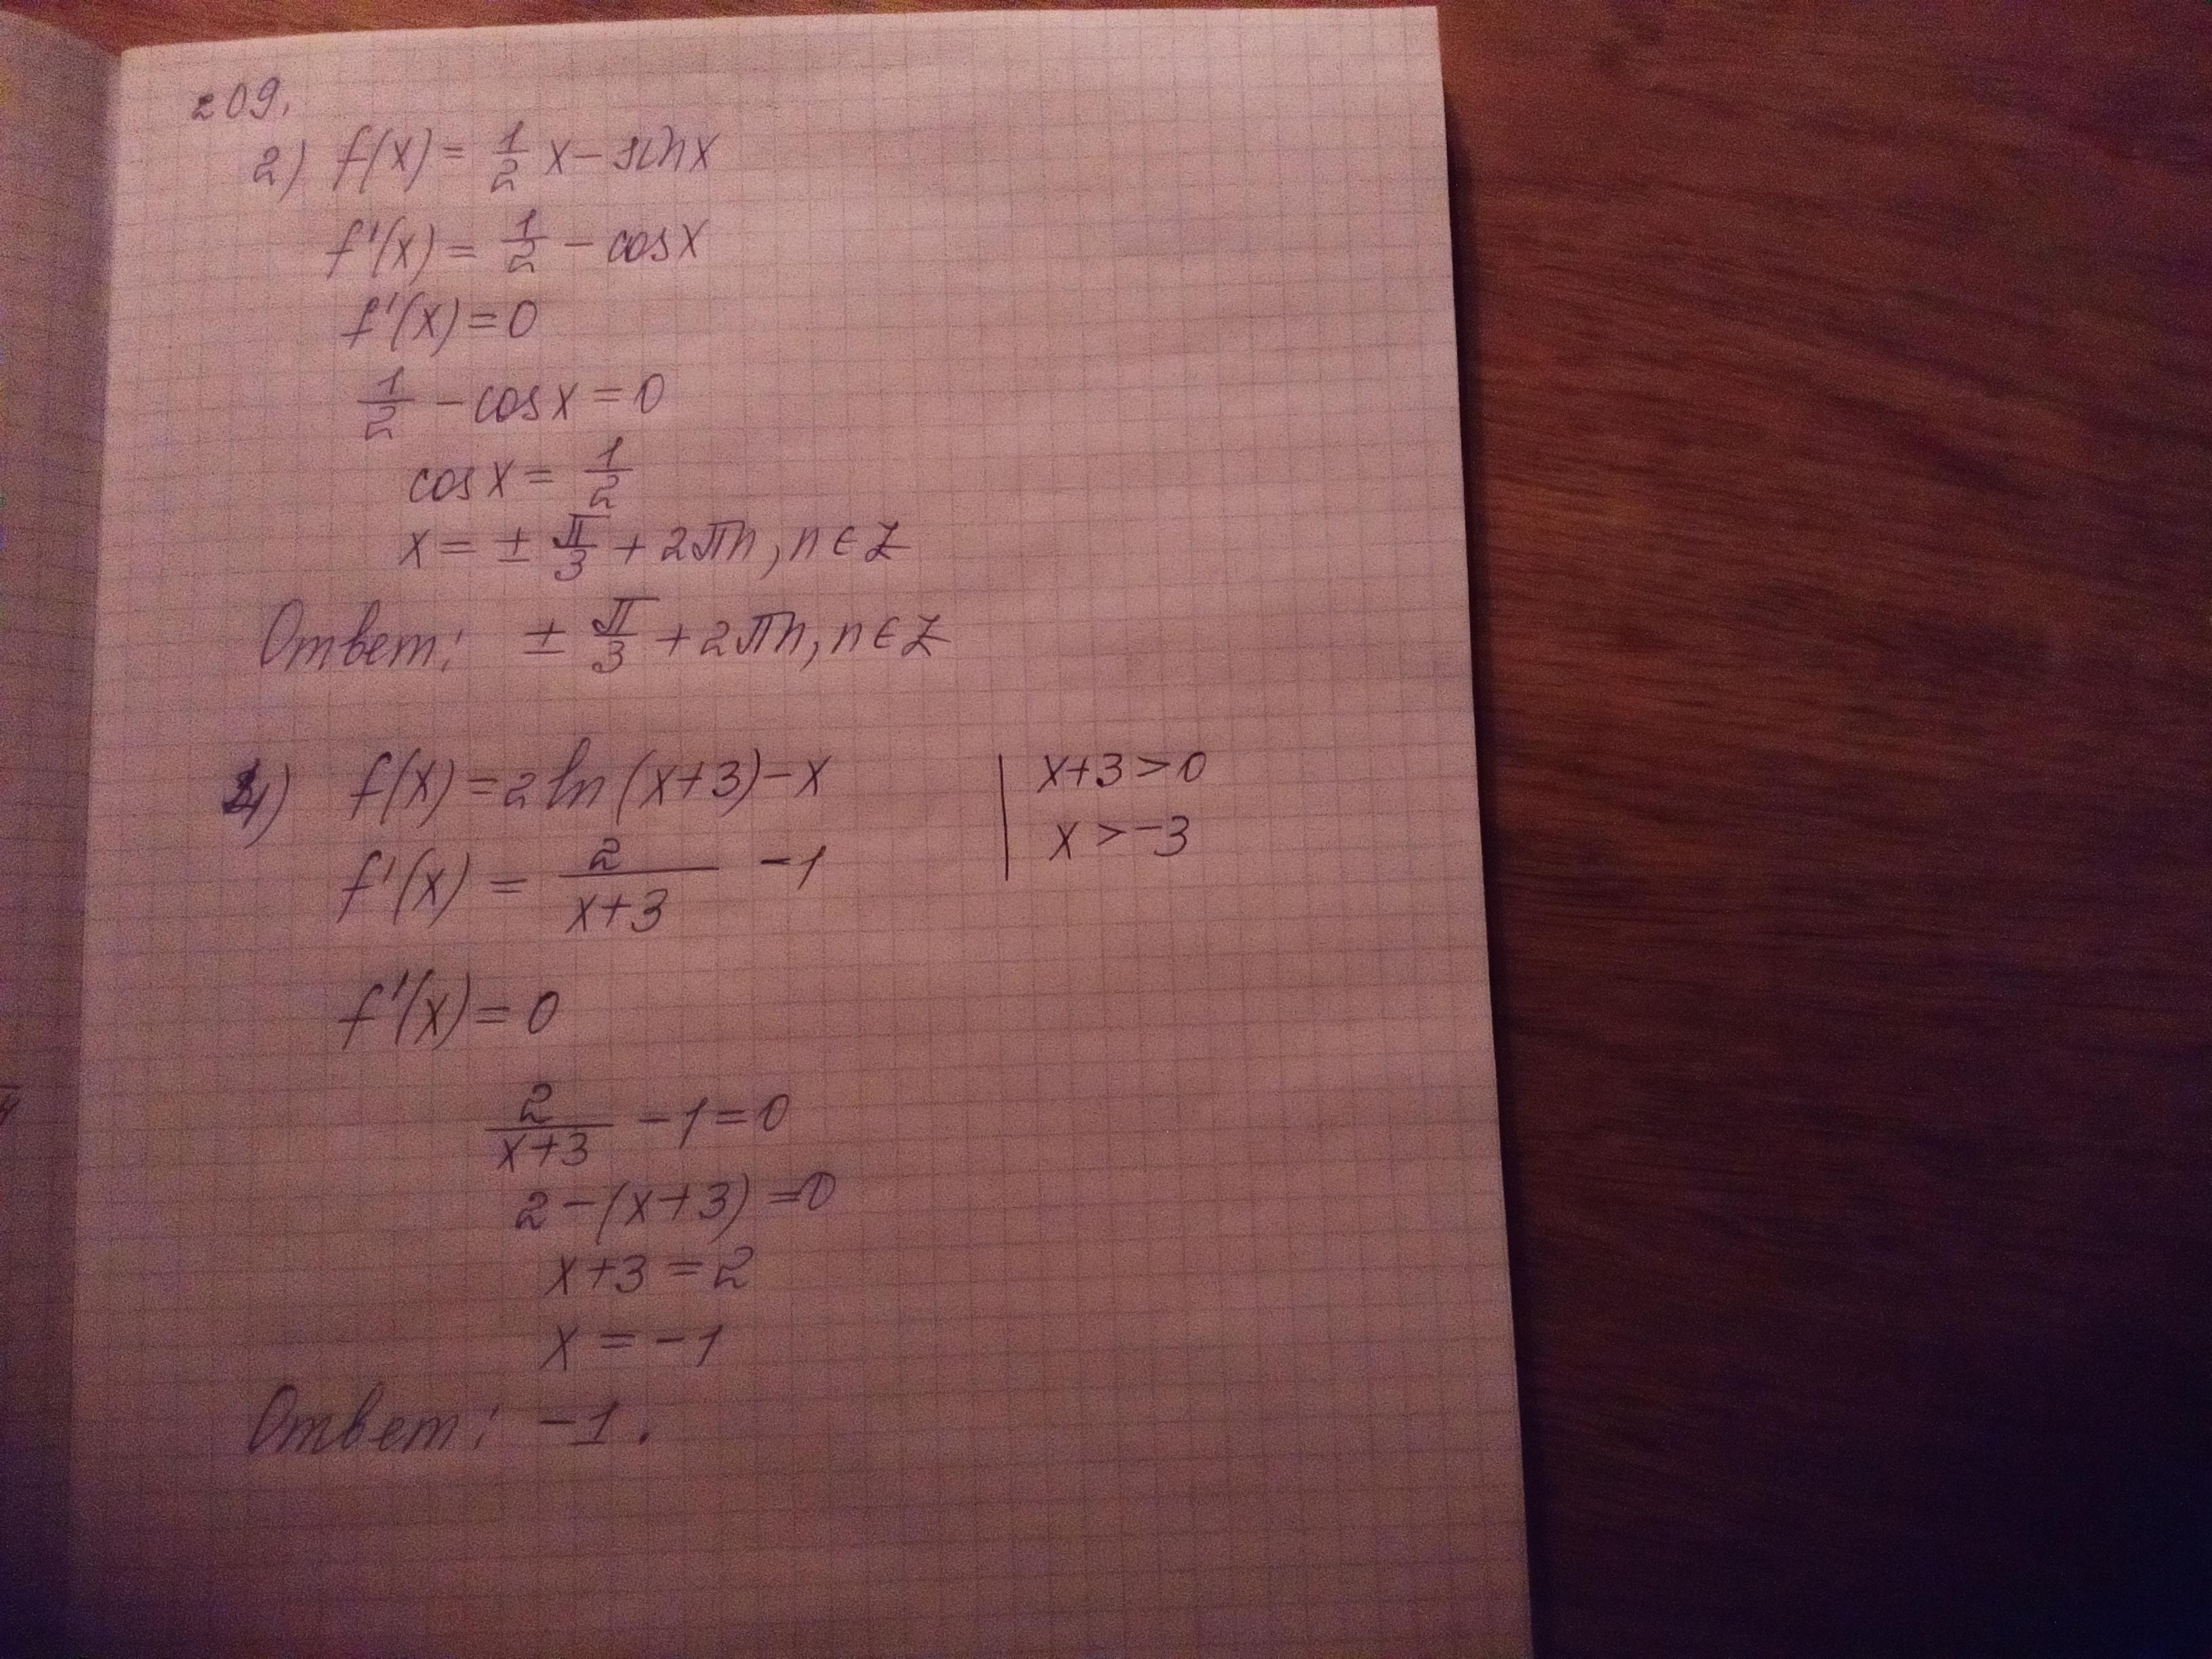 209.
2) f(x) = 1/2 x - sin x
f'(x) = 1/2 - cos x
f'(x) = 0
1/2 - cos x = 0
cos x = 1/2
x = ± π/3 + 2πn, n ∈ Z
Ответ: ± π/3 + 2πn, n ∈ Z
4) f(x) = 2 ln (x+3) - x | x+3 > 0
f'(x) = 2/(x+3) - 1 | x > -3
f'(x) = 0
2/(x+3) - 1 = 0
2 - (x+3) = 0
x+3 = 2
x = -1
Ответ: -1.